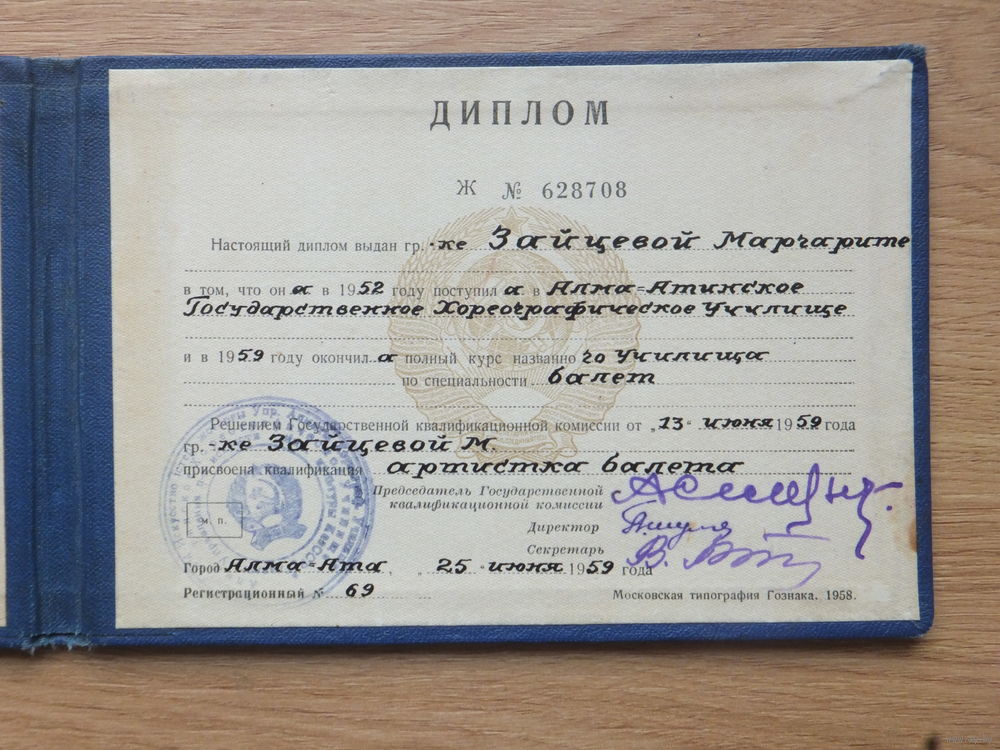 ДИПЛОМ
Ж № 628708
Настоящий диплом выдан гр.-ке Зайцевой Маргарите
в том, что он а в 1952 году поступил а в Алма-Атинское
Государственное Хореографическое Училище
и в 1959 году окончил а полный курс названно го Училища
по специальности балет
Решением Государственной квалификационной комиссии от „13" июня 1959 года
гр.-ке Зайцевой М.
присвоена квалификация артистка балета
Председатель Государственной
квалификационной комиссии
Директор
Секретарь
м. п.
Город Алма-Ата, „25" июня 1959 года
Регистрационный № 69
Московская типография Гознака. 1958.